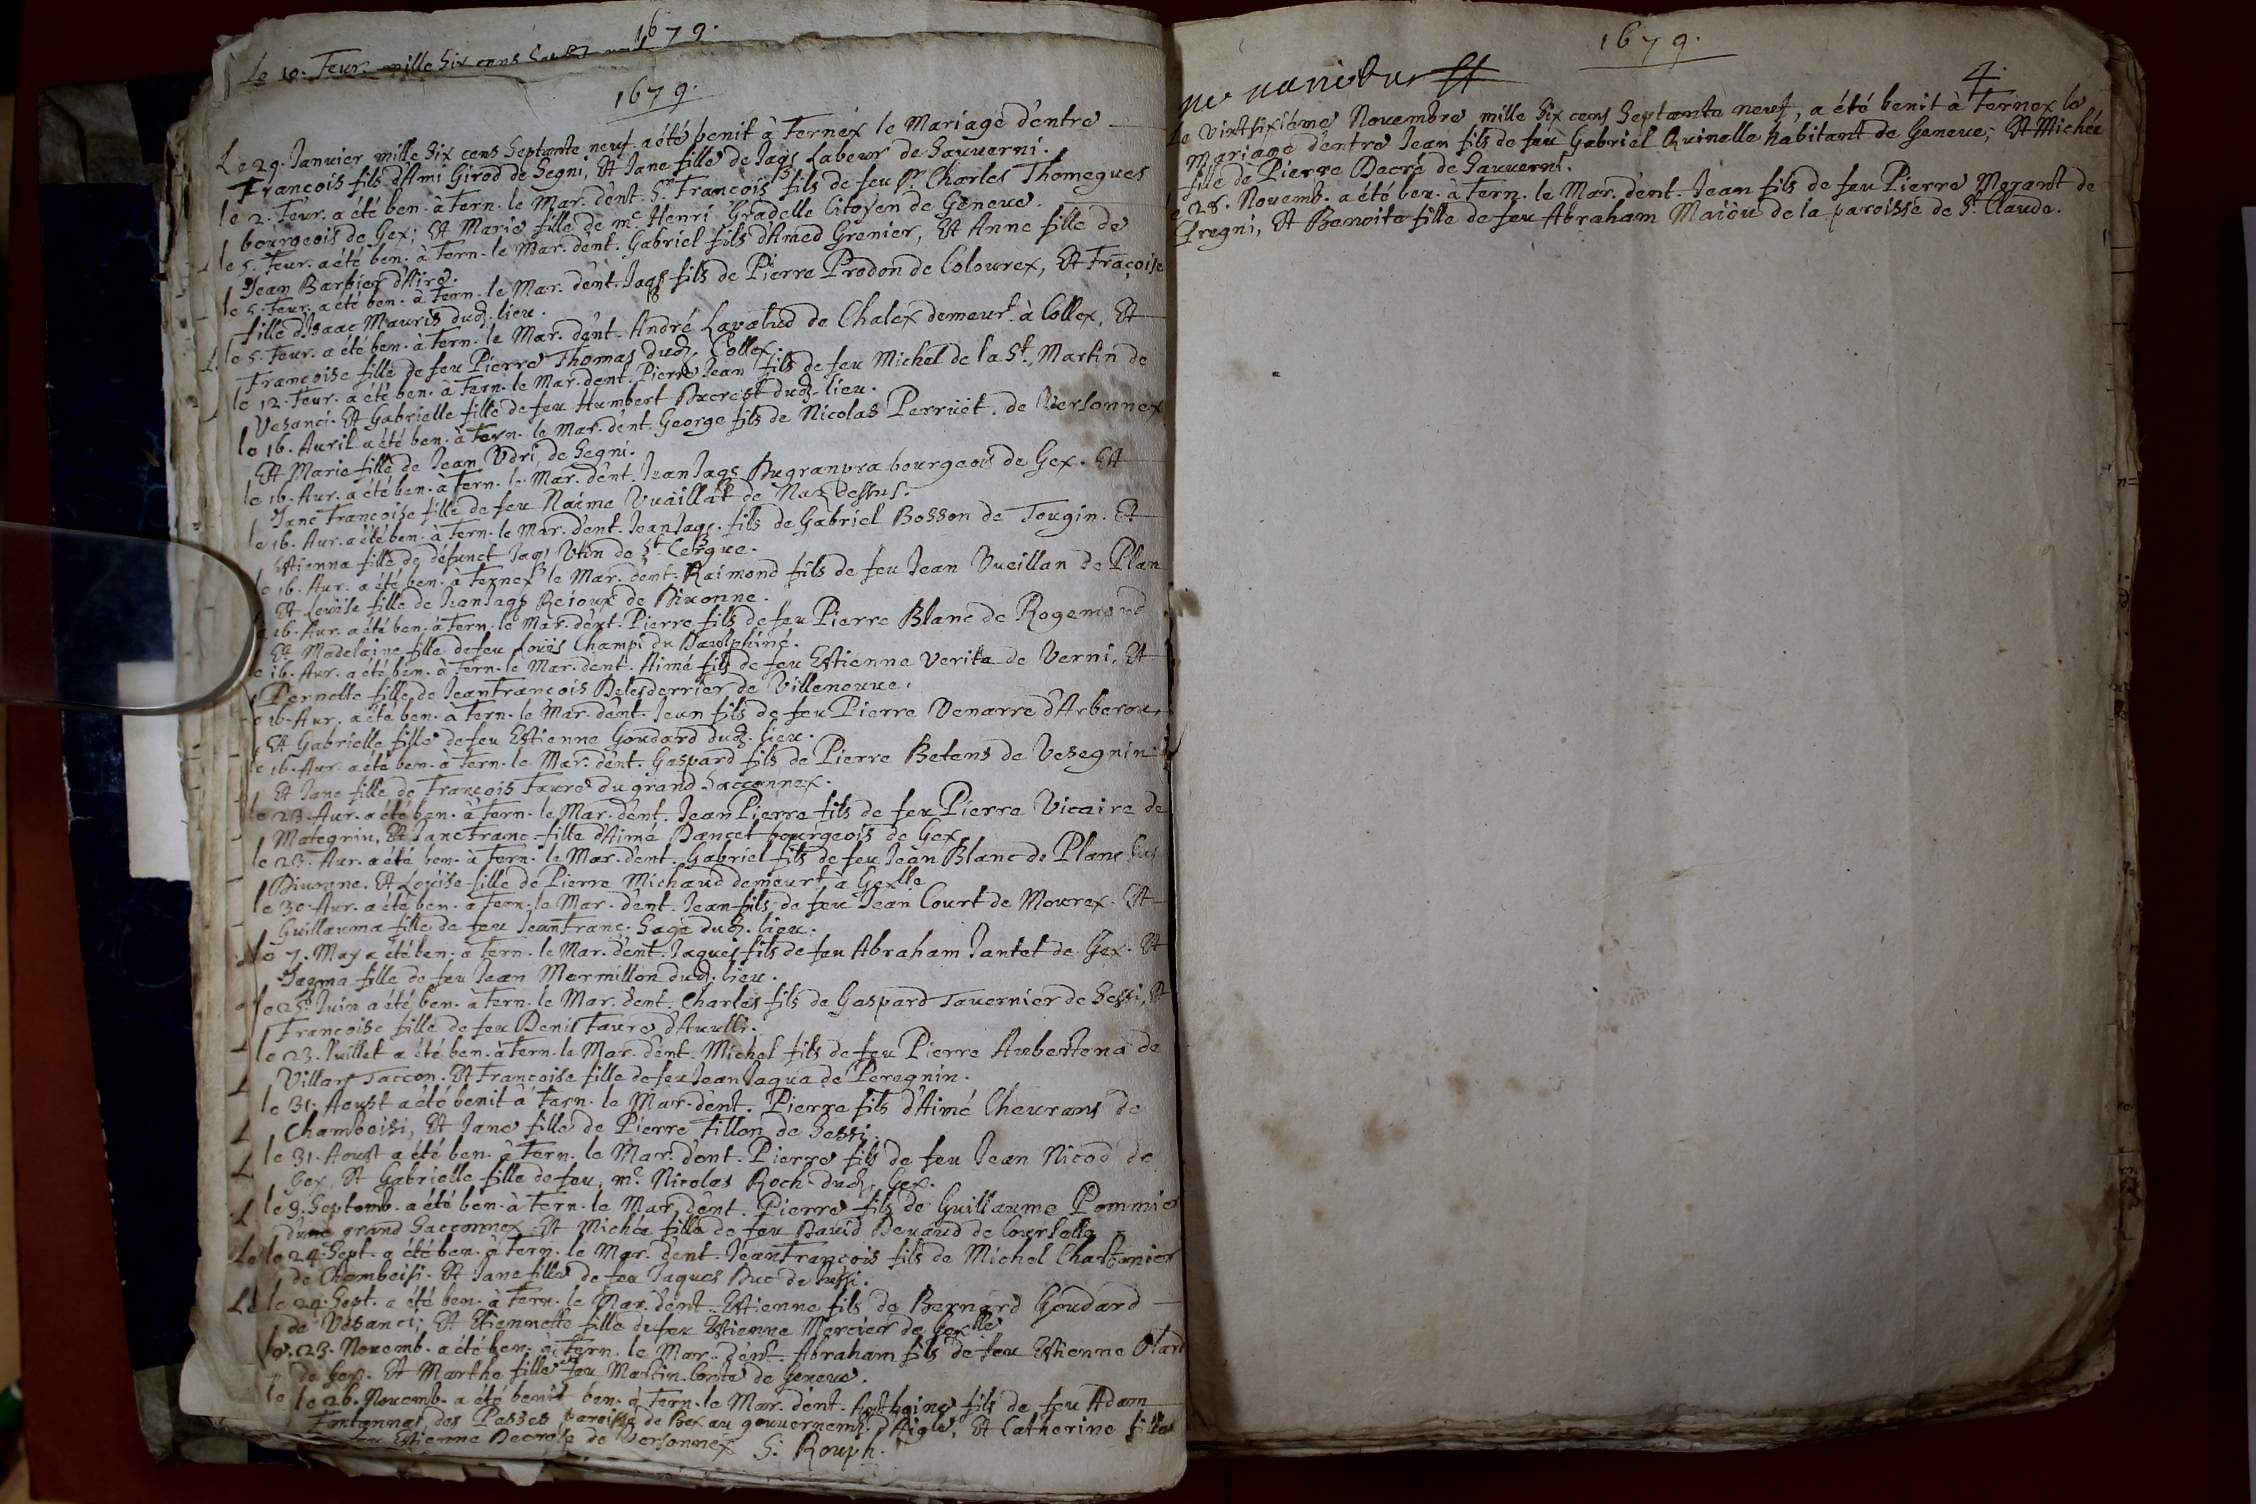 1679.
Le 10. Feur. mille Six cens
1679.
Le 29. Januier mille Six cens Septante neuf. a été benit à Fernex le Mariage d'entre
François fils d'Ami Girod de Segni, Et Jane fille de Jaqs Labeur de Sauuerni.
le 2. Feur. a été ben. à Fern. le Mar. d'ent. Sr. François fils de feu Sr. Charles Thomegues
bourgeois de Gex; Et Marie fille de mc. Henri Gradelle Citoyen de Geneue.
le 5. Feur. a été ben. à Fern. le Mar. dent. Gabriel fils d'Amed Grenier, Et Anne fille de
Jean Barbier d'Aire.
le 5. Feur. a été ben. à Fern. le Mar. d'ent. Jaqs fils de Pierre Prodon de Colourex, Et Frãçoise
fille d'Isaac Mauris dud. lieu.
le 5. Feur. a été ben. à Fern. le Mar. d'ent. André Lauatud de Chalex demeurt. à Collex, Et
Françoise fille de feu Pierre Thomas dud. Collex.
le 12. Feur. a été ben. à Fern. le Mar. dent. Pierre Jean fils de feu Michel de la St. Martin de
Vesanci. Et Gabrielle fille de feu Humbert Ducrest dud. lieu.
le 16. Auril a été ben. à Fern. le Mar. d'ent. George fils de Nicolas Perruet. de Versonnex
Et Marie fille de Jean Vdri de Segni.
le 16. Aur. a été ben. à Fern. le Mar. d'ent. Jean Jaqs Dugranpra bourgeois de Gex. Et
Jane Françoise fille de feu Naéme Vuaillat de Naz dessus.
le 16. Aur. a été ben. à Fern. le Mar. d'ent. Jean Jaqs. fils de Gabriel Bosson de Tougin. Et
Estienna fille de défunct Jaqs Vtin de St. Cergue.
le 16. Aur. a été ben. à Fernex le Mar. dent. Raimond fils de feu Jean Vueillan de Plan
Et Louïse fille de Jean Jaqs Reioux de Diuonne.
le 16. Aur. a été ben. à Fern. le Mar. d'ent. Pierre fils de feu Pierre Blanc de Rogemond
Et Madelaine fille de feu Louïs Champi du Daulphiné.
le 16. Aur. a été ben. à Fern. le Mar. dent. Aimé fils de feu Estienne Verita de Verni, Et
Pernette fille de Jean François Delesderrier de Villeneuue.
le 16. Aur. a été ben. à Fern. le Mar. d'ent. Jean fils de feu Pierre Venarre d'Arberou,
Et Gabrielle fille de feu Estienne Goudard dud. lieu.
le 16. Aur. a été ben. à Fern. le Mar. d'ent. Gaspard fils de Pierre Betems de Vesegnin
Et Jane fille de François Faure du grand Sacconnex.
le 23. Aur. a été ben. à Fern. le Mar. d'ent. Jean Pierre fils de feu Pierre Vicaire de
Mategnin, Et Jane Franc. fille d'Aimé Dancet bourgeois de Gex.
le 23. Aur. a été ben. à Fern. le Mar. d'ent. Gabriel fils de feu Jean Blanc de Plane
Diuonne. Et Louïse fille de Pierre Michaud demeurt. à Gex
le 30. Aur. a été ben. à Fern. le Mar. d'ent. Jean fils de feu Jean Court de Mourex. Et
Guillauma fille de feu Jean Franc. Sage dud. lieu.
le 7. May a été ben. à Fern. le Mar. d'ent. Jaques fils de feu Abraham Jantet de Gex. Et
Jaqma fille de feu Jean Mermillon dud. lieu.
le 25. Juin a été ben. à Fern. le Mar. dent. Charles fils de Gaspard Tauernier de Sessi, Et
Françoise fille de feu Denis Faure d'Auulli.
le 23. Juillet a été ben. à Fern. le Mar. d'ent. Michel fils de feu Pierre Aubertena de
Villars Taccon. Et Françoise fille de feu Jean Jaqua de Peregnin.
le 31. Aoust a été benit à Fern. le Mar. d'ent. Pierre fils d'Aimé Cheurans de
Chamboisi, Et Jane fille de Pierre Fillon de Sessi.
le 31. Aoust a été ben. à Fern. le Mar. d'ent. Pierre fils de feu Jean Nicod de
Gex, Et Gabrielle fille de feu mc. Nicolas Roch dud. Gex.
le 3. Septemb. a été ben. à Fern. le Mar. d'ent. Pierre fils de Guillaume Pommier
du grand Sacconnex. Et Michée fille de feu Dauid Deuaud de Courtelle
le 24. Sept. a été ben. à Fern. le Mar. d'ent. Jean François fils de Michel Chastanier
de Chambeisi. Et Jane fille de feu Jaques Duc de
le 24. Sept. a été ben. à Fern. le Mar. d'ent. Estienne fils de Bernard Goudard
de Vesanci; Et Etiennette fille de feu Estienne Mercier de Gex
le 23. Nouemb. a été ben. à Fern. le Mar. d'ent. Abraham fils de feu Estienne
de Gex. Et Marthe fille feu Martin Conte de Geneue.
le 26. Nouemb. a été benit ben. à Fern. le Mar. d'ent. Anthoine fils de feu Adam
Fontannaz, des Posses paroisse de Bex au gouuernemt. d'Aigle, Et Catherine fille
feu Estienne Decrose de Versonnex S. Rouph.
1679.
4.
ne uarietur
Le vintsixiéme Nouembre mille Six cens Septante neuf, a été benit à Fernex le
Mariage d'entre Jean fils de feu Gabriel Quinelle habitant de Geneue; Et Michée
fille de Pierre Decré de Sauuerni.
le 28. Nouemb. a été ben. à Fern. le Mar. d'ent. Jean fils de feu Pierre Morant de
Pregni, Et Benoite fille de feu Abraham Maiou de la paroisse de St. Claude.